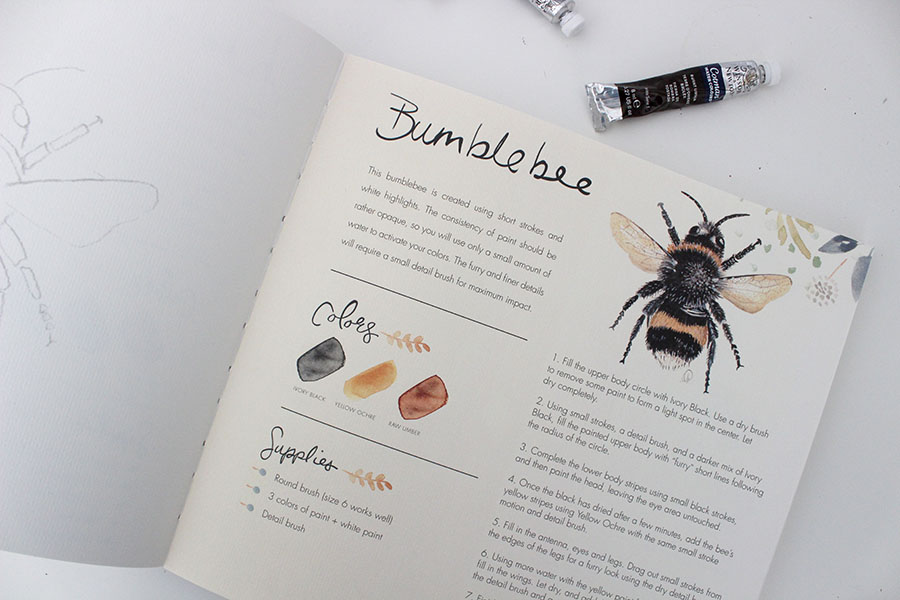 Bumblebee
This bumblebee is created using short strokes and
white highlights. The consistency of paint should be
rather opaque, so you will use only a small amount of
water to activate your colors. The furry and finer details
will require a small detail brush for maximum impact.
Colors
IVORY BLACK
YELLOW OCHRE
RAW UMBER
Supplies
Round brush (size 6 works well)
3 colors of paint + white paint
Detail brush
1. Fill the upper body circle with Ivory Black. Use a dry brush
to remove some paint to form a light spot in the center. Let
dry completely.
2. Using small strokes, a detail brush, and a darker mix of Ivory
Black, fill the painted upper body with "furry" short lines following
the radius of the circle.
3. Complete the lower body stripes using small black strokes,
and then paint the head, leaving the eye area untouched.
4. Once the black has dried after a few minutes, add the bee's
yellow stripes using Yellow Ochre with the same small stroke
motion and detail brush.
5. Fill in the antenna, eyes and legs. Drag out small strokes from
the edges of the legs for a furry look using the dry detail
6. Using more water with the yellow
fill in the wings. Let dry, and
the detail brush and
7.
Cotman
WATER COLOUR